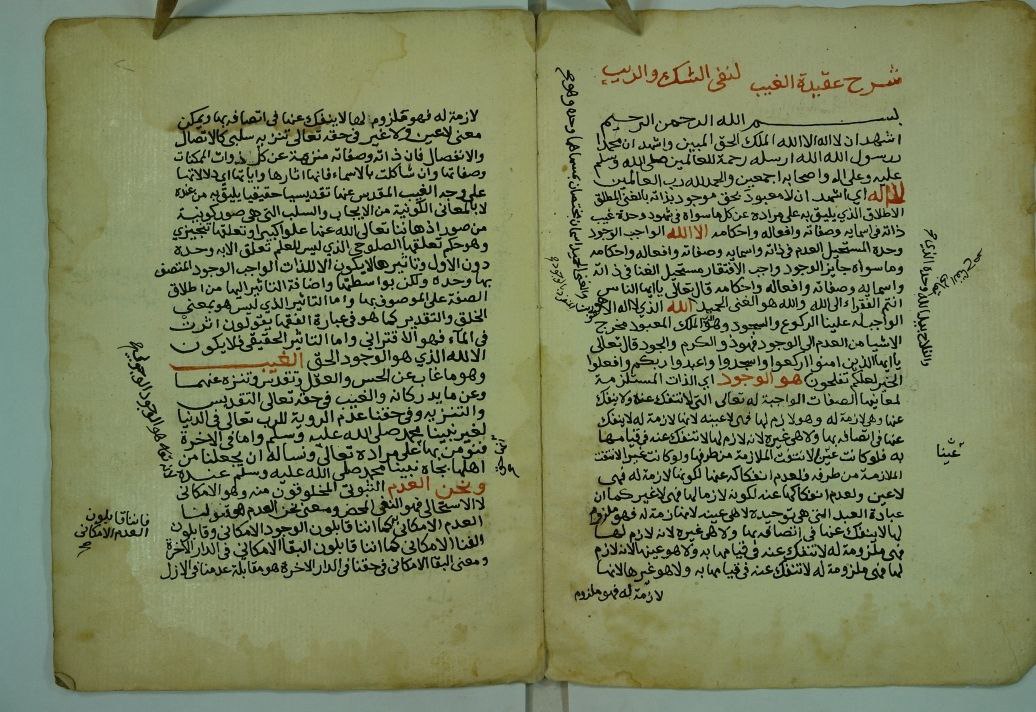 شرح عقيدة الغيب لنفى الشك والريب
بسم الله الرحمن الرحيم
اشهد ان لا اله الا الله الملك الحق المبين واشهد ان محمدا
رسول الله الله ارسله رحمة للعالمين صلى الله وسلم
عليه وعلى اله واصحابه اجمعين والحمد لله رب العالمين
لا اله اى اشهد ان لا معبود بحق موجود بذاته بالغنى المطلق
الاطلاق الذى يليق به على مراده عن كل ما سواه فى شهود وحدة غيب
ذاته فى اسمايه وصفاته وافعاله واحكامه الا الله الواجب الوجود
وحده المستحيل العدم فى ذاته واسمايه وصفاته وافعاله واحكامه
وما سواه جايز الوجود واجب الافتقار مستحيل الغنا فى ذاته
واسمايه وصفاته وافعاله واحكامه قال تعالى يا ايها الناس
انتم الفقراء الى الله والله هو الغنى الحميد الله الذى لا اله الا هو
الواجب له علينا الركوع والسجود وهو الملك المعبود مخرج
الاشيا من العدم الى الوجود فهو ذو الكرم والجود قال تعالى
يا ايها الذين امنوا اركعوا واسجدوا واعبدوا ربكم وافعلوا
الخير لعلكم تفلحون هو الوجود اى الذات المستلزمة
لمعانيها الصفات الواجبة له تعالى التى لا تنفك عنه ولا ينفك
عنها وهى لازمة له وهو لازم لها فهى لا عينه لانها لازمة له لا ينفك
عنها فى اتصافه بها ولا هى غيره لانه لازم لها لا تنفك عنه فى قيامها
به فلو كانت عين لانتفت الملازمة من طرفها ولو كانت غير لانتفت
الملازمة من طرفه فلعدم انفكاكه عنها لكونها لازمة له فهى
لا عين ولعدم انفكاكها عنه لكونه لازما لها فهى لا غير كما ان
عبادة العبد التى هى توحيده لا هى عينه لانها لازمة له فهو ملزوم
لها لا ينفك عنها فى اتصافه بها ولا هى غيره لانه لازم لها
فهى ملزومة له لا تنفك عنه فى قيامها به ولا هو عينها لانه لازم
لها فهى ملزومة له لا تنفك عنه فى قيامها به ولا هو غيرها لانها
لازمة له فهو ملزوم
والفلاح بيد الله وحده الذى
عينا
لازمة له فهو ملزوم لها لا ينفك عنها فى اتصافه بها ويمكن
معنى لا عين ولا غير فى حقه تعالى تنزيه سلبى كالاتصال
والانفصال فان ذاته وصفاته منزهة عن كل ذوات الممكنات
وصفاتها وان شاكلت بالاسما فانها اثارها واياتها اى دلالاتها
على وجه الغيب المقدس عنها تقديسا حقيقيا يليق به من عنده
لا بالمعانى الكونية من الايجاب والسلب التى هى صور كونية
من صور اذهاننا تعالى الله عنها علوا كبيرا وتعلقها تنجيزى
وهو حكم تعلقها الصلوحى الذى ليس للعلم تعلق الا به وحده
دون الاول وتاثيرها لا يكون الا للذات الواجب الوجود المتصف
بها وحده ولكن بواسطتها واضافة التاثير اليها من اطلاق
الصفة على الموصوف بها واما التاثير الذى ليس هو بمعنى
الخلق والتقدير كما هو فى عبارة الفقها يقولون اثرت
فى الماء فهو الاقترانى واما التاثير الحقيقى فلا يكون
الا لله الذى هو الوجود الحق الغيب
وهو ما غاب عن الحس والعقل وتقدس وتنزه عنهما
وعن ما يدركانه والغيب فى حقه تعالى التقديس
والتنزيه وفى حقنا عدم الروية للرب تعالى فى الدنيا
لغير نبينا محمد صلى الله عليه وسلم واما فى الاخرة
فنومن بها على مراده تعالى ونساله ان يجعلنا من
اهلها بجاه نبينا محمد صلى الله عليه وسلم عنده
ونحن العدم الثبوتى المخلوقون منه وهو الامكانى
لا الاستحالى فهو النفى المحض ومعنى نحن العدم هو قبولنا
العدم الامكانى كما اننا قابلون الوجود الامكانى وقابلون
الفنا الامكانى كما اننا قابلون البقا الامكانى فى الدار الاخرة
ومعنى البقا الامكانى فى حقنا فى الدار الاخرة هو مقابلة عدمنا فى الازل
فاننا قابلون
العدم الامكانى